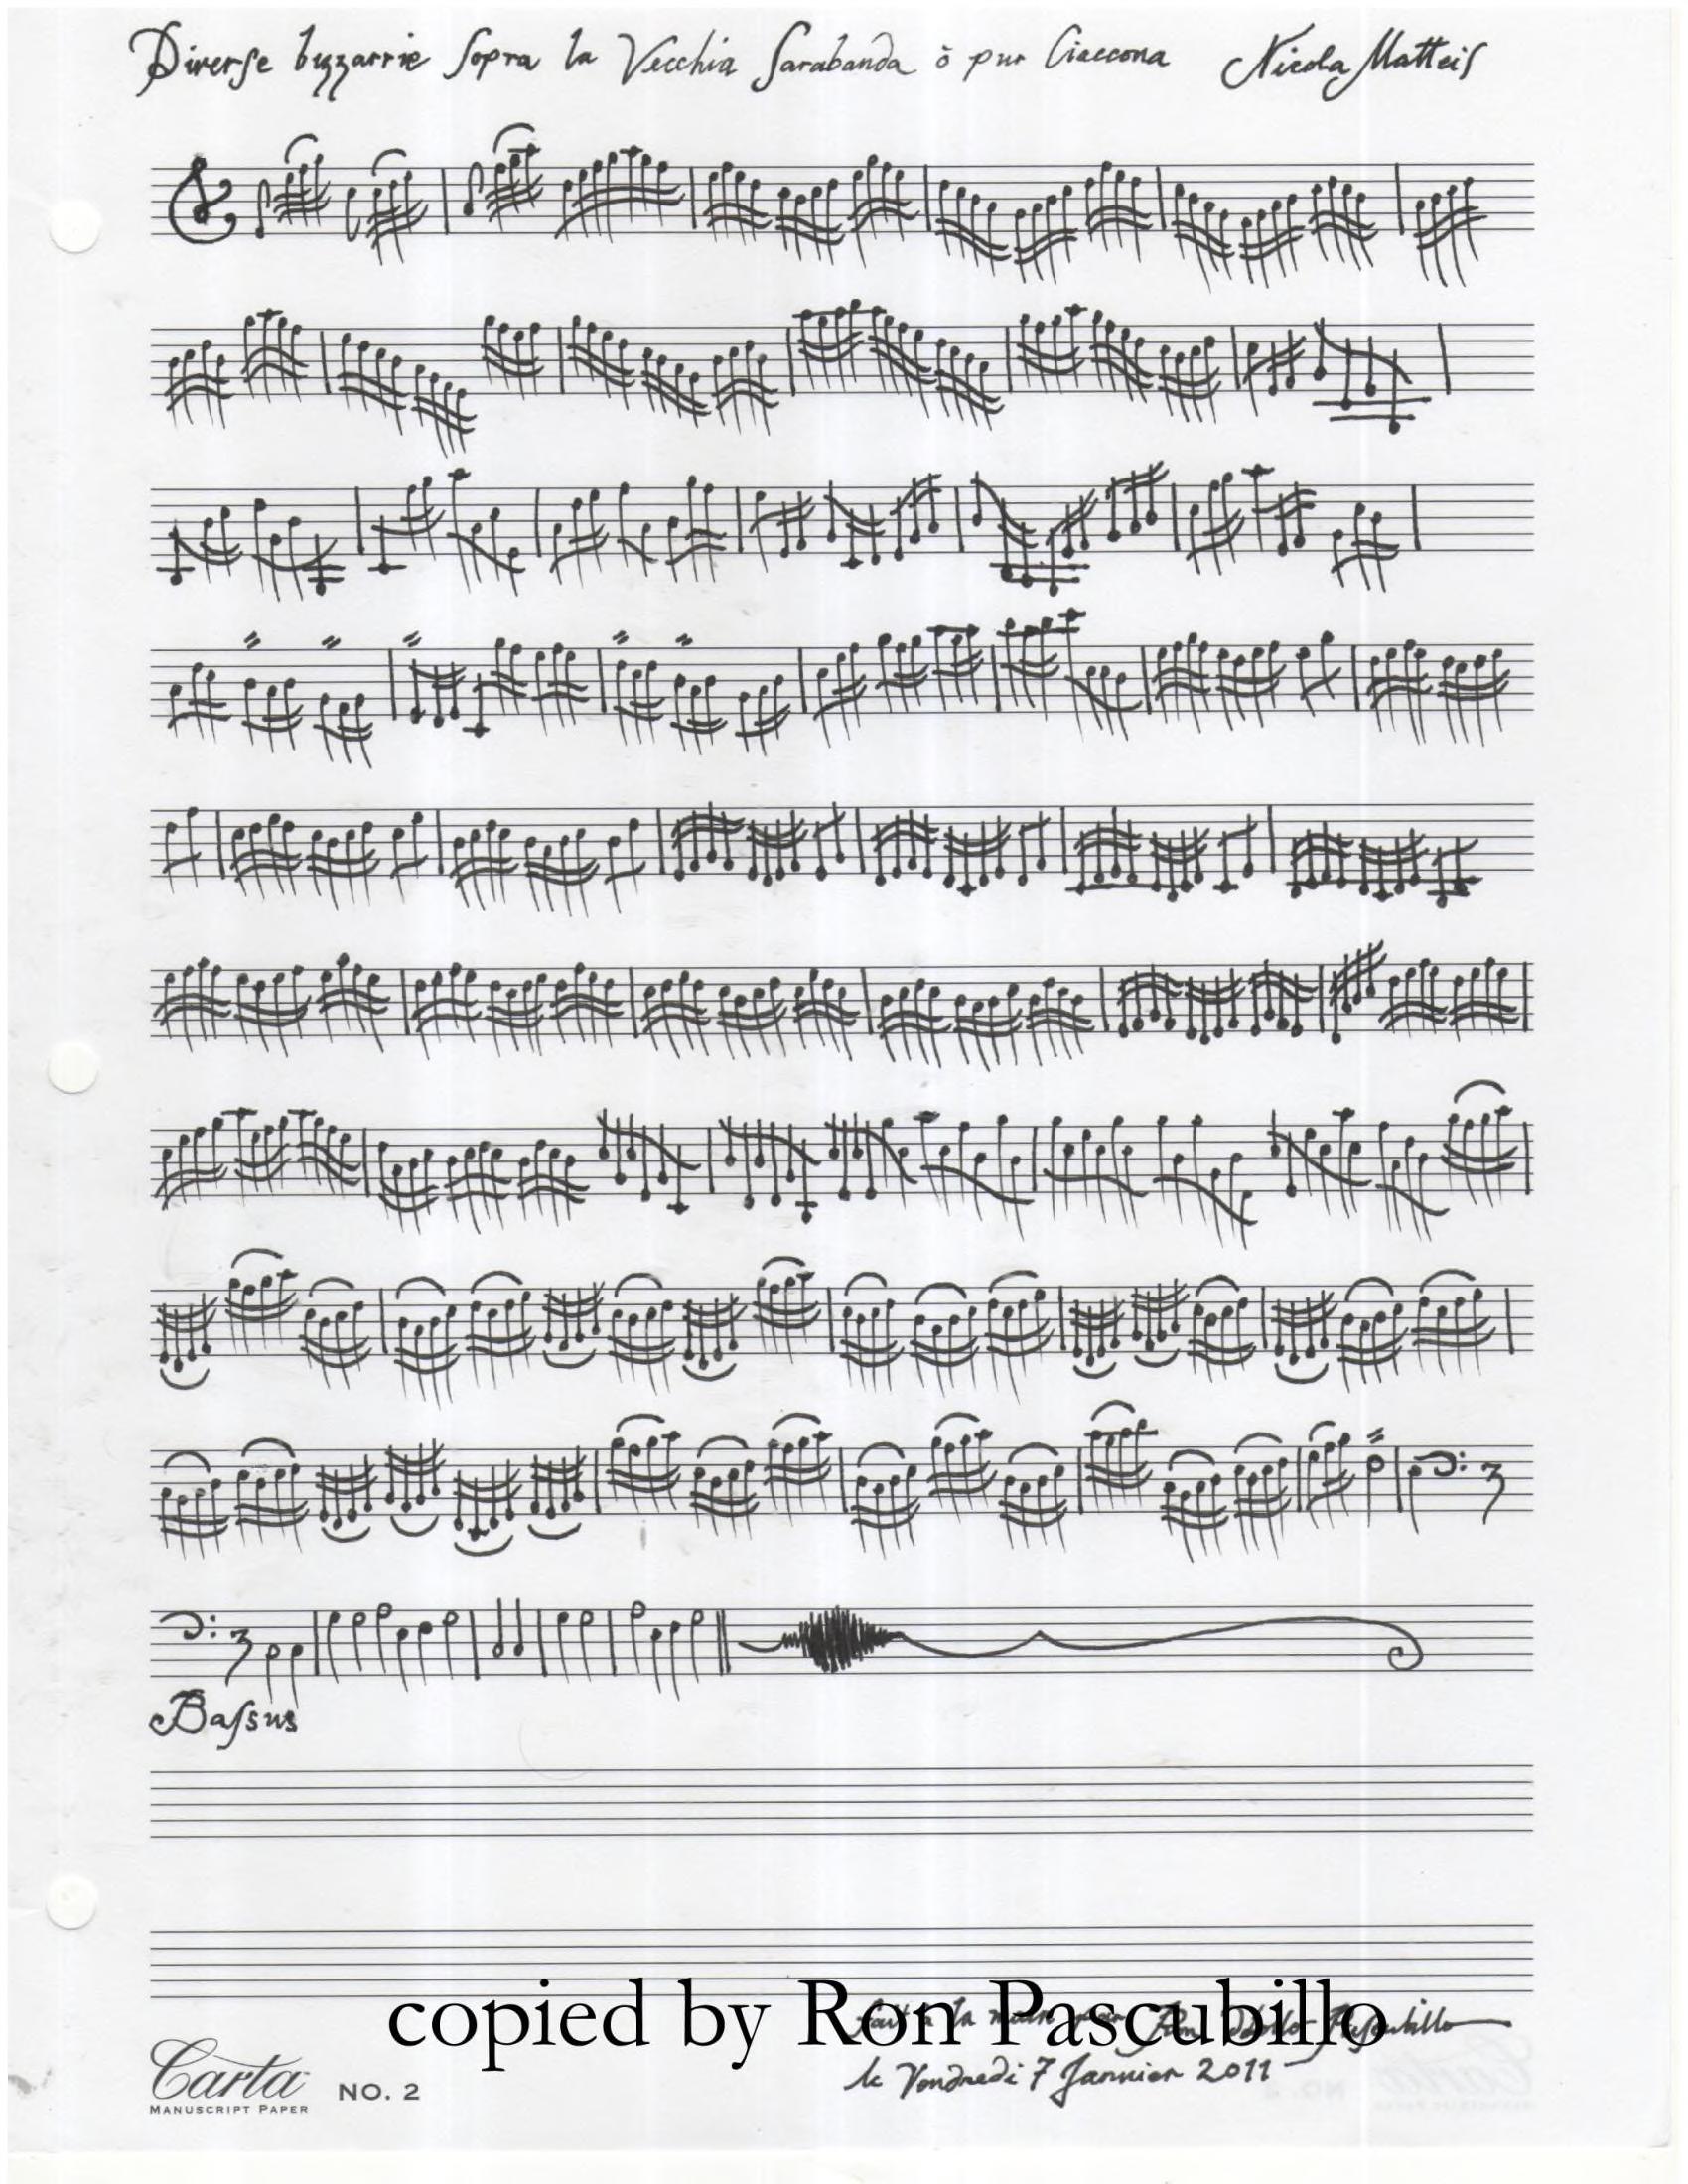 Diverſe bizzarrie ſopra la Vecchia Sarabanda ò pur Ciaccona Nicola Matteiſ
3
3
Baſsus
copied by Ron Pascubillo
fait à la main par Ron Pascubillo
le Vendredi 7 Janvier 2011
Carta NO. 2
MANUSCRIPT PAPER